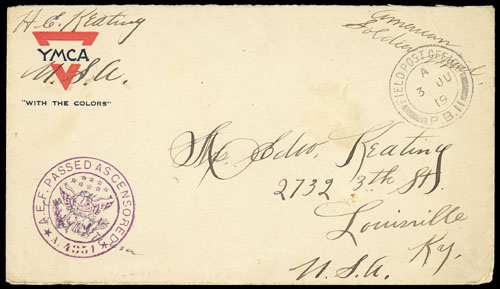 H. E. Keating
YMCA
U.S.A.
"WITH THE COLORS"
American
Soldier's Mail,
FIELD POST OFFICE
A
3 JU
19
P.B.11
A.E.F. PASSED AS CENSORED
A. 4351
Mr Edw. Keating
2732 3rd St.
Louisville
Ky.
U.S.A.